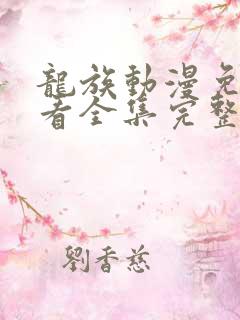 龍族動漫免
看全集完整
劉香慈